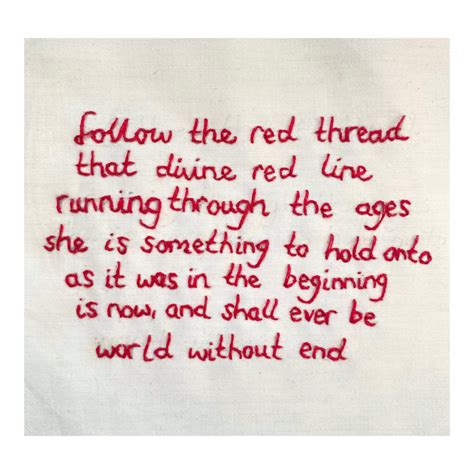 follow the red thread
that divine red line
running through the ages
she is something to hold onto
as it was in the beginning
is now, and shall ever be
world without end